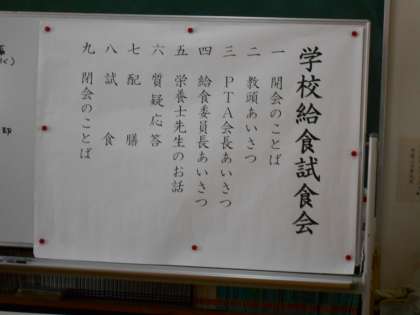 学校給食試食会
一 開会のことば
二 教頭あいさつ
三 PTA会長あいさつ
四 給食委員長あいさつ
五 栄養士先生のお話
六 質疑応答
七 配膳
八 試食
九 閉会のことば